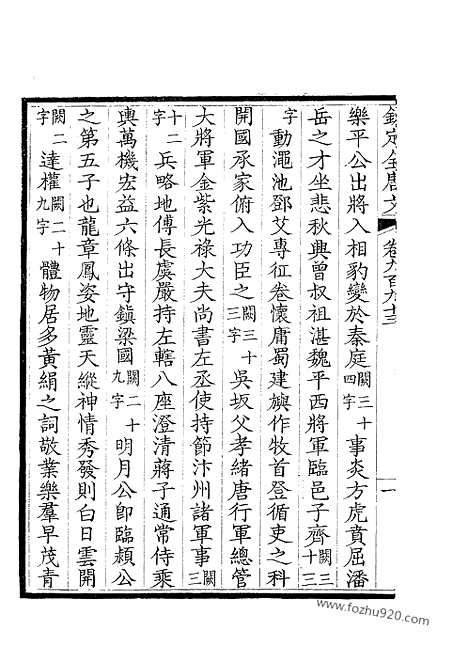 欽定全唐文 卷九百九十三 一
樂平公出將入相豹變於秦庭闕三十四字事炎方虎賁屈潘
岳之才坐悲秋興曾叔祖湛魏平西將軍臨邑子齊闕三十三
字動澠池鄧艾專征卷懷庸蜀建嶼作牧首登循吏之科
開國承家俯入功臣之闕三十三字吳坂父孝緒唐行軍總管
大將軍金紫光祿大夫尚書左丞使持節汴州諸軍事闕三
十二字兵略地傳長虞嚴持左轄八座澄清蔣子通常侍乘
輿萬機宏益六條出守鎮梁國闕二十九字明月公卽臨潁公
之第五子也龍章鳳姿地靈天縱神情秀發則白日雲開
闕二字達權闕二十九字體物居多黃絹之詞敬業樂羣早茂青
www.fozhu920.com